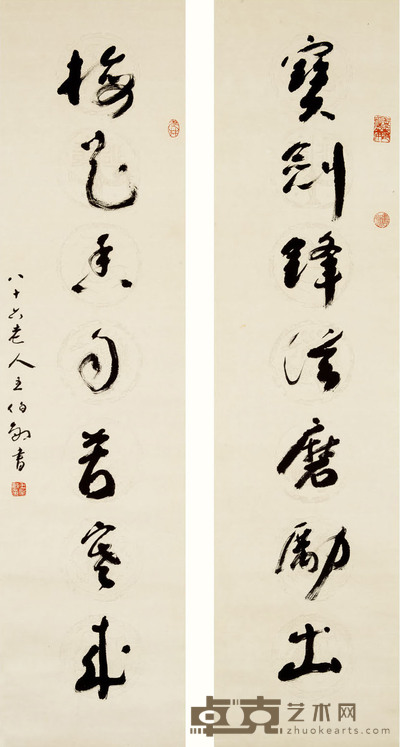 寶劍鋒從磨勵出
梅花香自苦寒來
八十六老人王伯敏書
卓克艺术网
zhuokearts.com